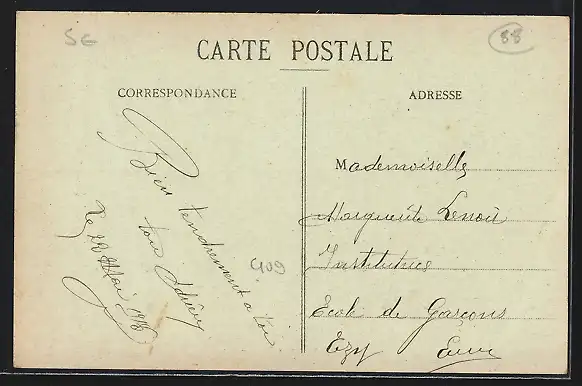 SE
88
CARTE POSTALE
CORRESPONDANCE
ADRESSE
Bien tendrement à toi
ton
Le 29 Mai
409
Mademoiselle
Marguerite Lenoir
Institutrice
Ecole de Garçons
Ezy Eure